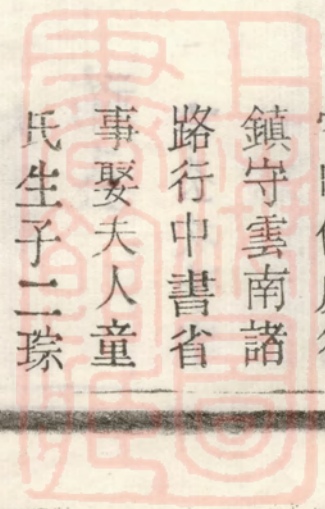 鎮守雲南諸
路行中書省
事娶夫人童
氏生子二琮